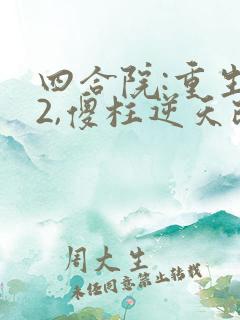 四合院:重生
2,傻柱逆天改
周大生
未经同意禁止转载